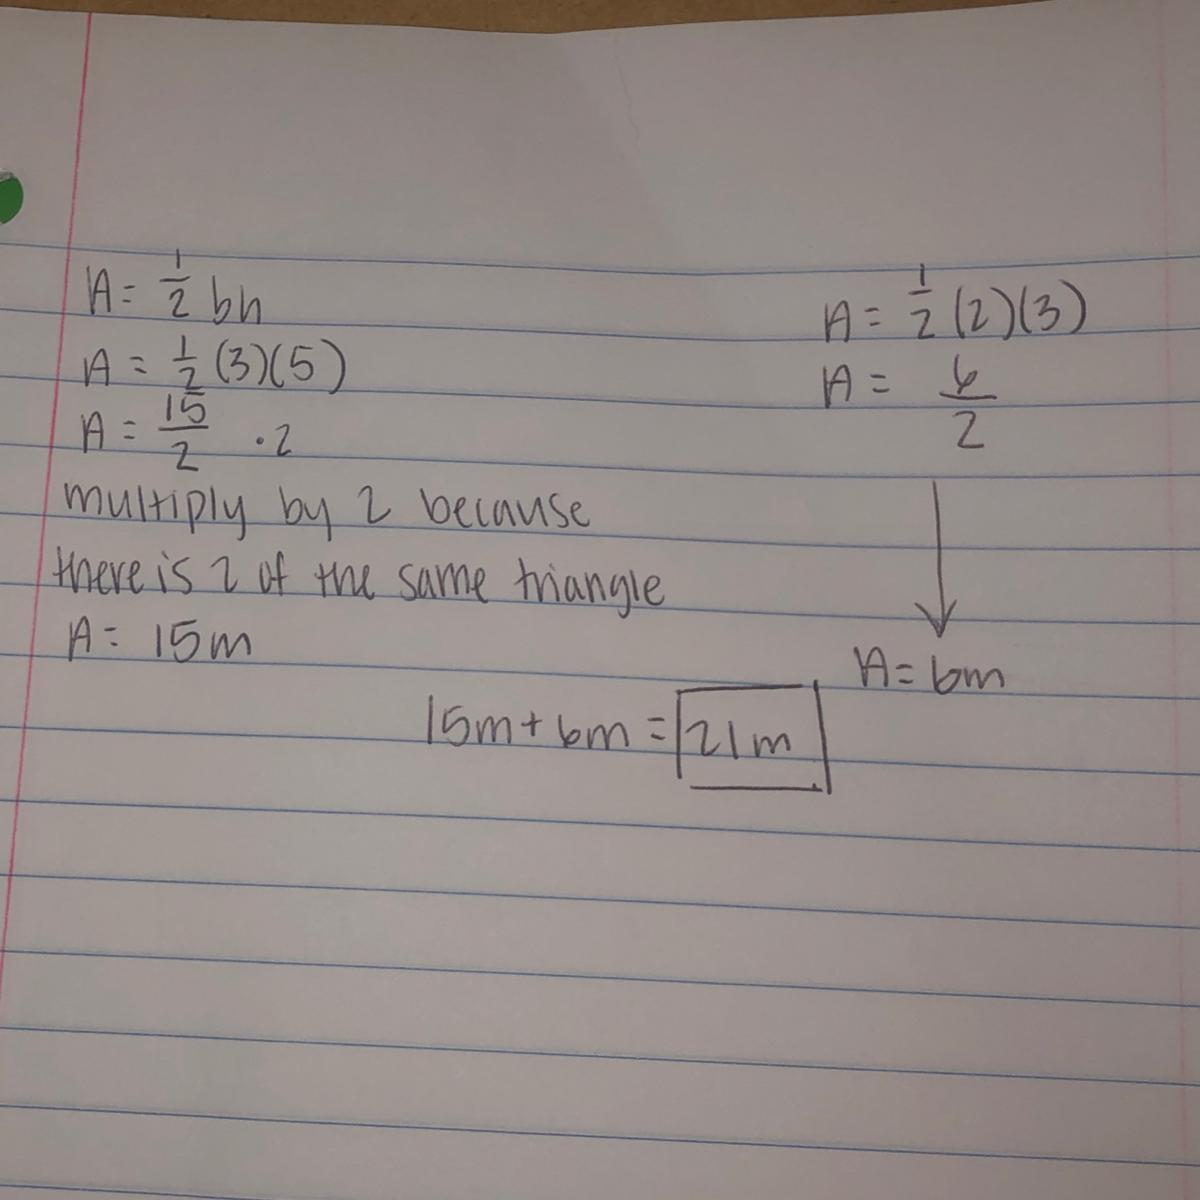 A = 1/2 bh
A = 1/2 (3)(5)
A = 15/2 · 2
multiply by 2 because
there is 2 of the same triangle
A = 15m
A = 1/2 (2)(3)
A = 6/2
A = 6m
15m + 6m = 21m